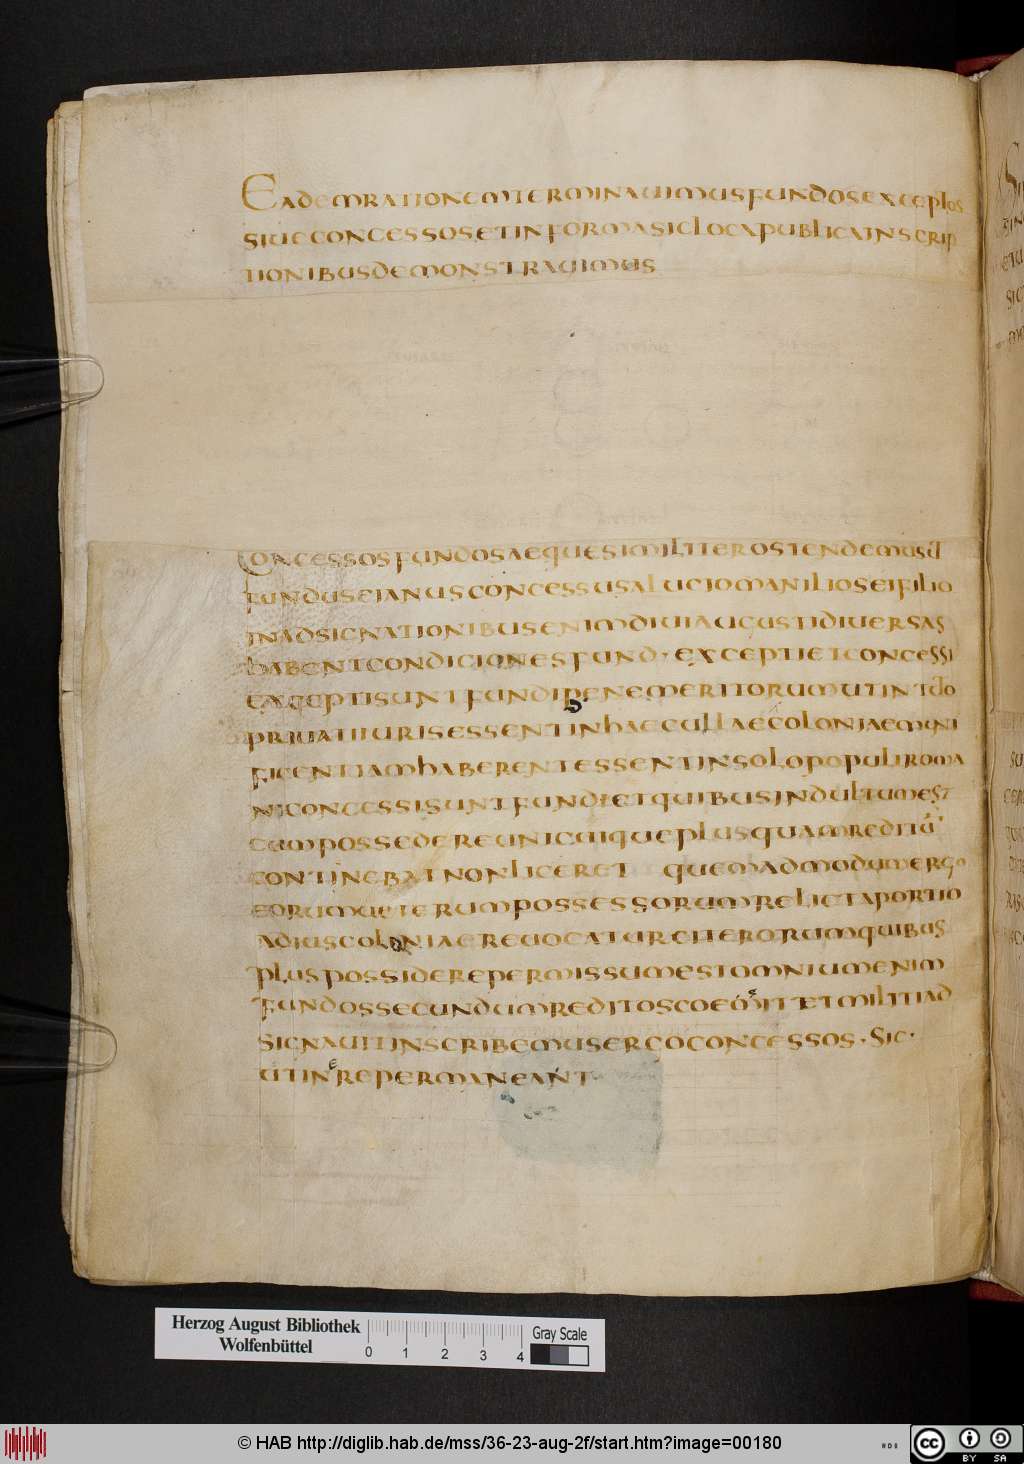 EADEMRATIONEMTERMINAUIMUSFUNDOSEXCEPTOS
SIUECONCESSOSETINFORMASICLOCAPUBLICAINSCRIP
TIONIBUSDEMONSTRAUIMUS
CONCESSOSFUNDOSAEQUESIMILITEROSTENDEMUSUT
FUNDUSSEIANUSCONCESSUSALUCIOMANILIOSEIFILIO
INADSIGNATIONIBUSENIMDIUIAUGUSTIDIUERSAS
HABENTCONDICIONESFUND·EXCEPTIETCONCESSI
EXCEPTISUNTFUNDIBENEMERITORUMUTINTOTO
PRIUATIIURISESSENTINHAECULLAECOLONIAEMUNI
FICENTIAMHABERENTESSENTINSOLOPOPULIROMA
NICONCESSISUNTFUNDIETQUIBUSINDULTUMEST
CUMPOSSEDEREUNICUIQUEPLUSQUAMREDITU
CONTINEBATNONLICERET QUEMADMODUMERGO
EORUMUETERUMPOSSESSORUMRELICTAPORTIO
ADIUSCOLONIAEREUOCATURCITERORUMQUIBUS
PLUSPOSSIDEREPERMISSUMESTOMNIUMENIM
FUNDOSSECUNDUMREDITOSCOEMITETMILITIAD
SIGNAUITINSCRIBEMUSERGOCONCESSOS·SIC·
UTINREPERMANEANT·
Herzog August Bibliothek
Wolfenbüttel
0 1 2 3 4
Gray Scale
© HAB http://diglib.hab.de/mss/36-23-aug-2f/start.htm?image=00180
cc BY SA